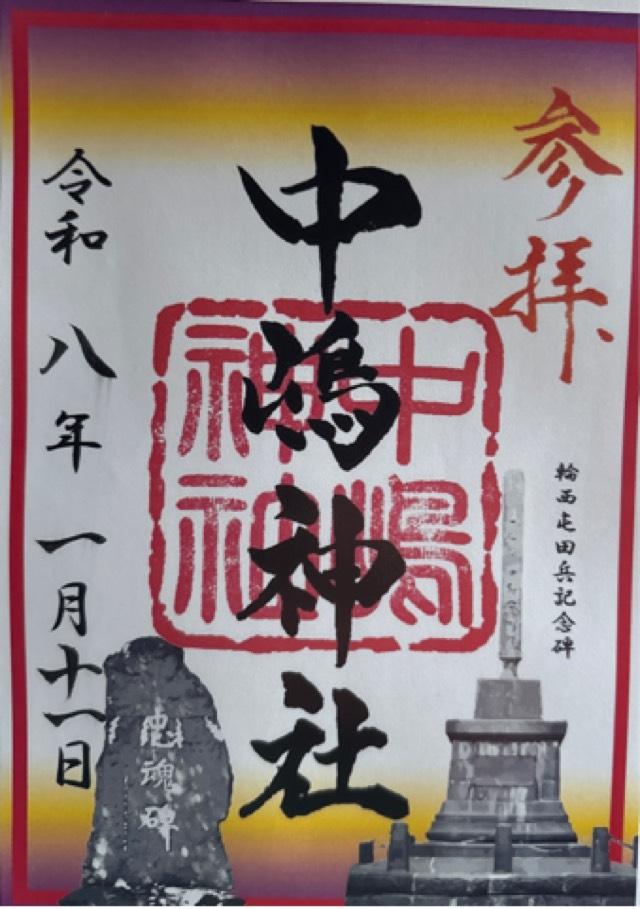 参拝
輪西屯田兵記念碑
中嶋神社
中嶋神社
忠魂碑
令和八年一月十一日